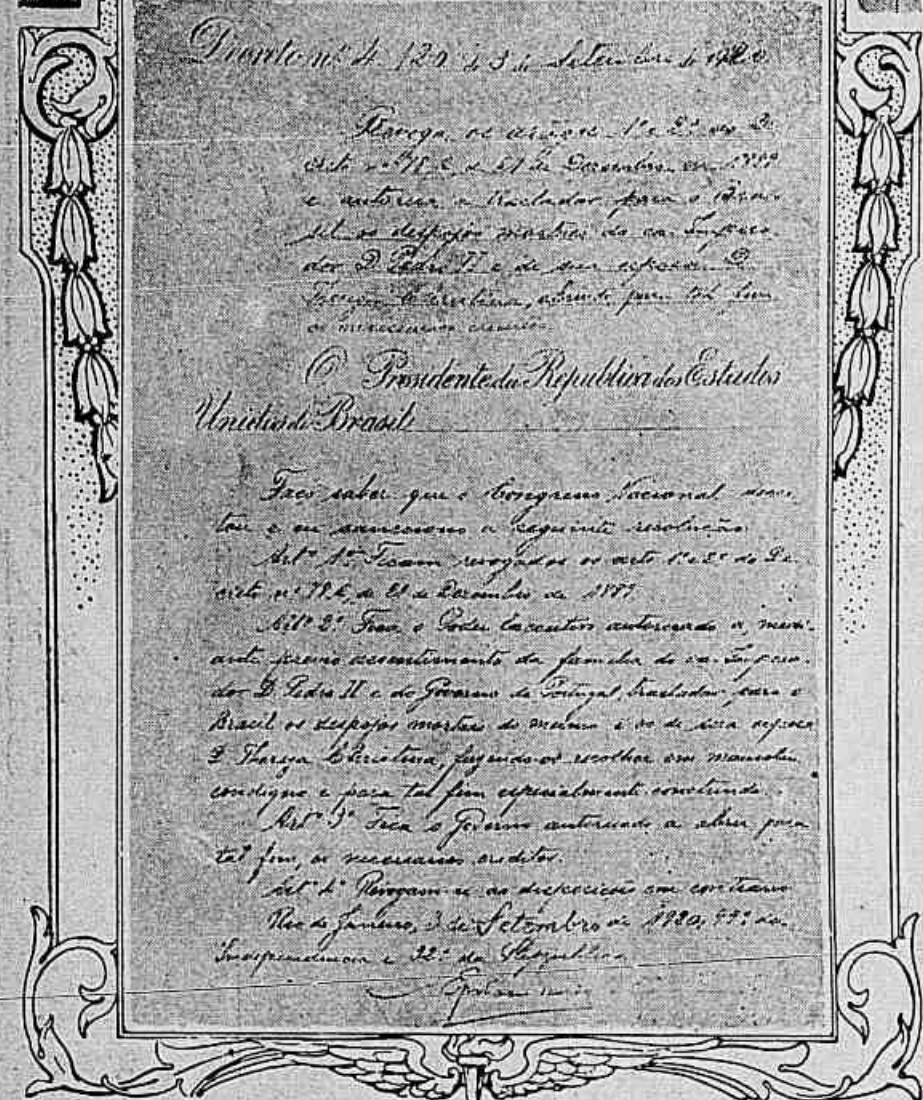 Decreto nº 4.120 de 3 de Setembro de 1920
Revoga os artigos 1º e 2º do De-
creto nº 78 A, de 21 de Dezembro de 1889
e autorisa a trasladar para o Bra-
sil os despojos mortaes do ex-Impera-
dor D. Pedro II e de sua esposa D.
Thereza Christina, abrindo para tal fim
os necessarios creditos.
O Presidente da Republica dos Estados
Unidos do Brasil:
Faço saber que o Congresso Nacional decre-
tou e eu sancciono a seguinte resolução:
Artº 1º Ficam revogados os arts 1º e 2º do De-
creto nº 78 A, de 21 de Dezembro de 1889.
Artº 2º Fica o Poder Executivo autorisado a, medi-
ante previo assentimento da familia do ex-Impera-
dor D. Pedro II e do Governo de Portugal, trasladar para o
Brasil os despojos mortaes do mesmo e os de sua esposa
D. Thereza Christina, fazendo-os recolher em mausoléu
condigno e para tal fim especialmente construido.
Artº 3º Fica o Governo autorisado a abrir para
tal fim, os necessarios creditos.
Artº 4º Revogam-se as disposições em contrario.
Rio de Janeiro, 3 de Setembro de 1920, 99º da
Independencia e 32º da Republica.